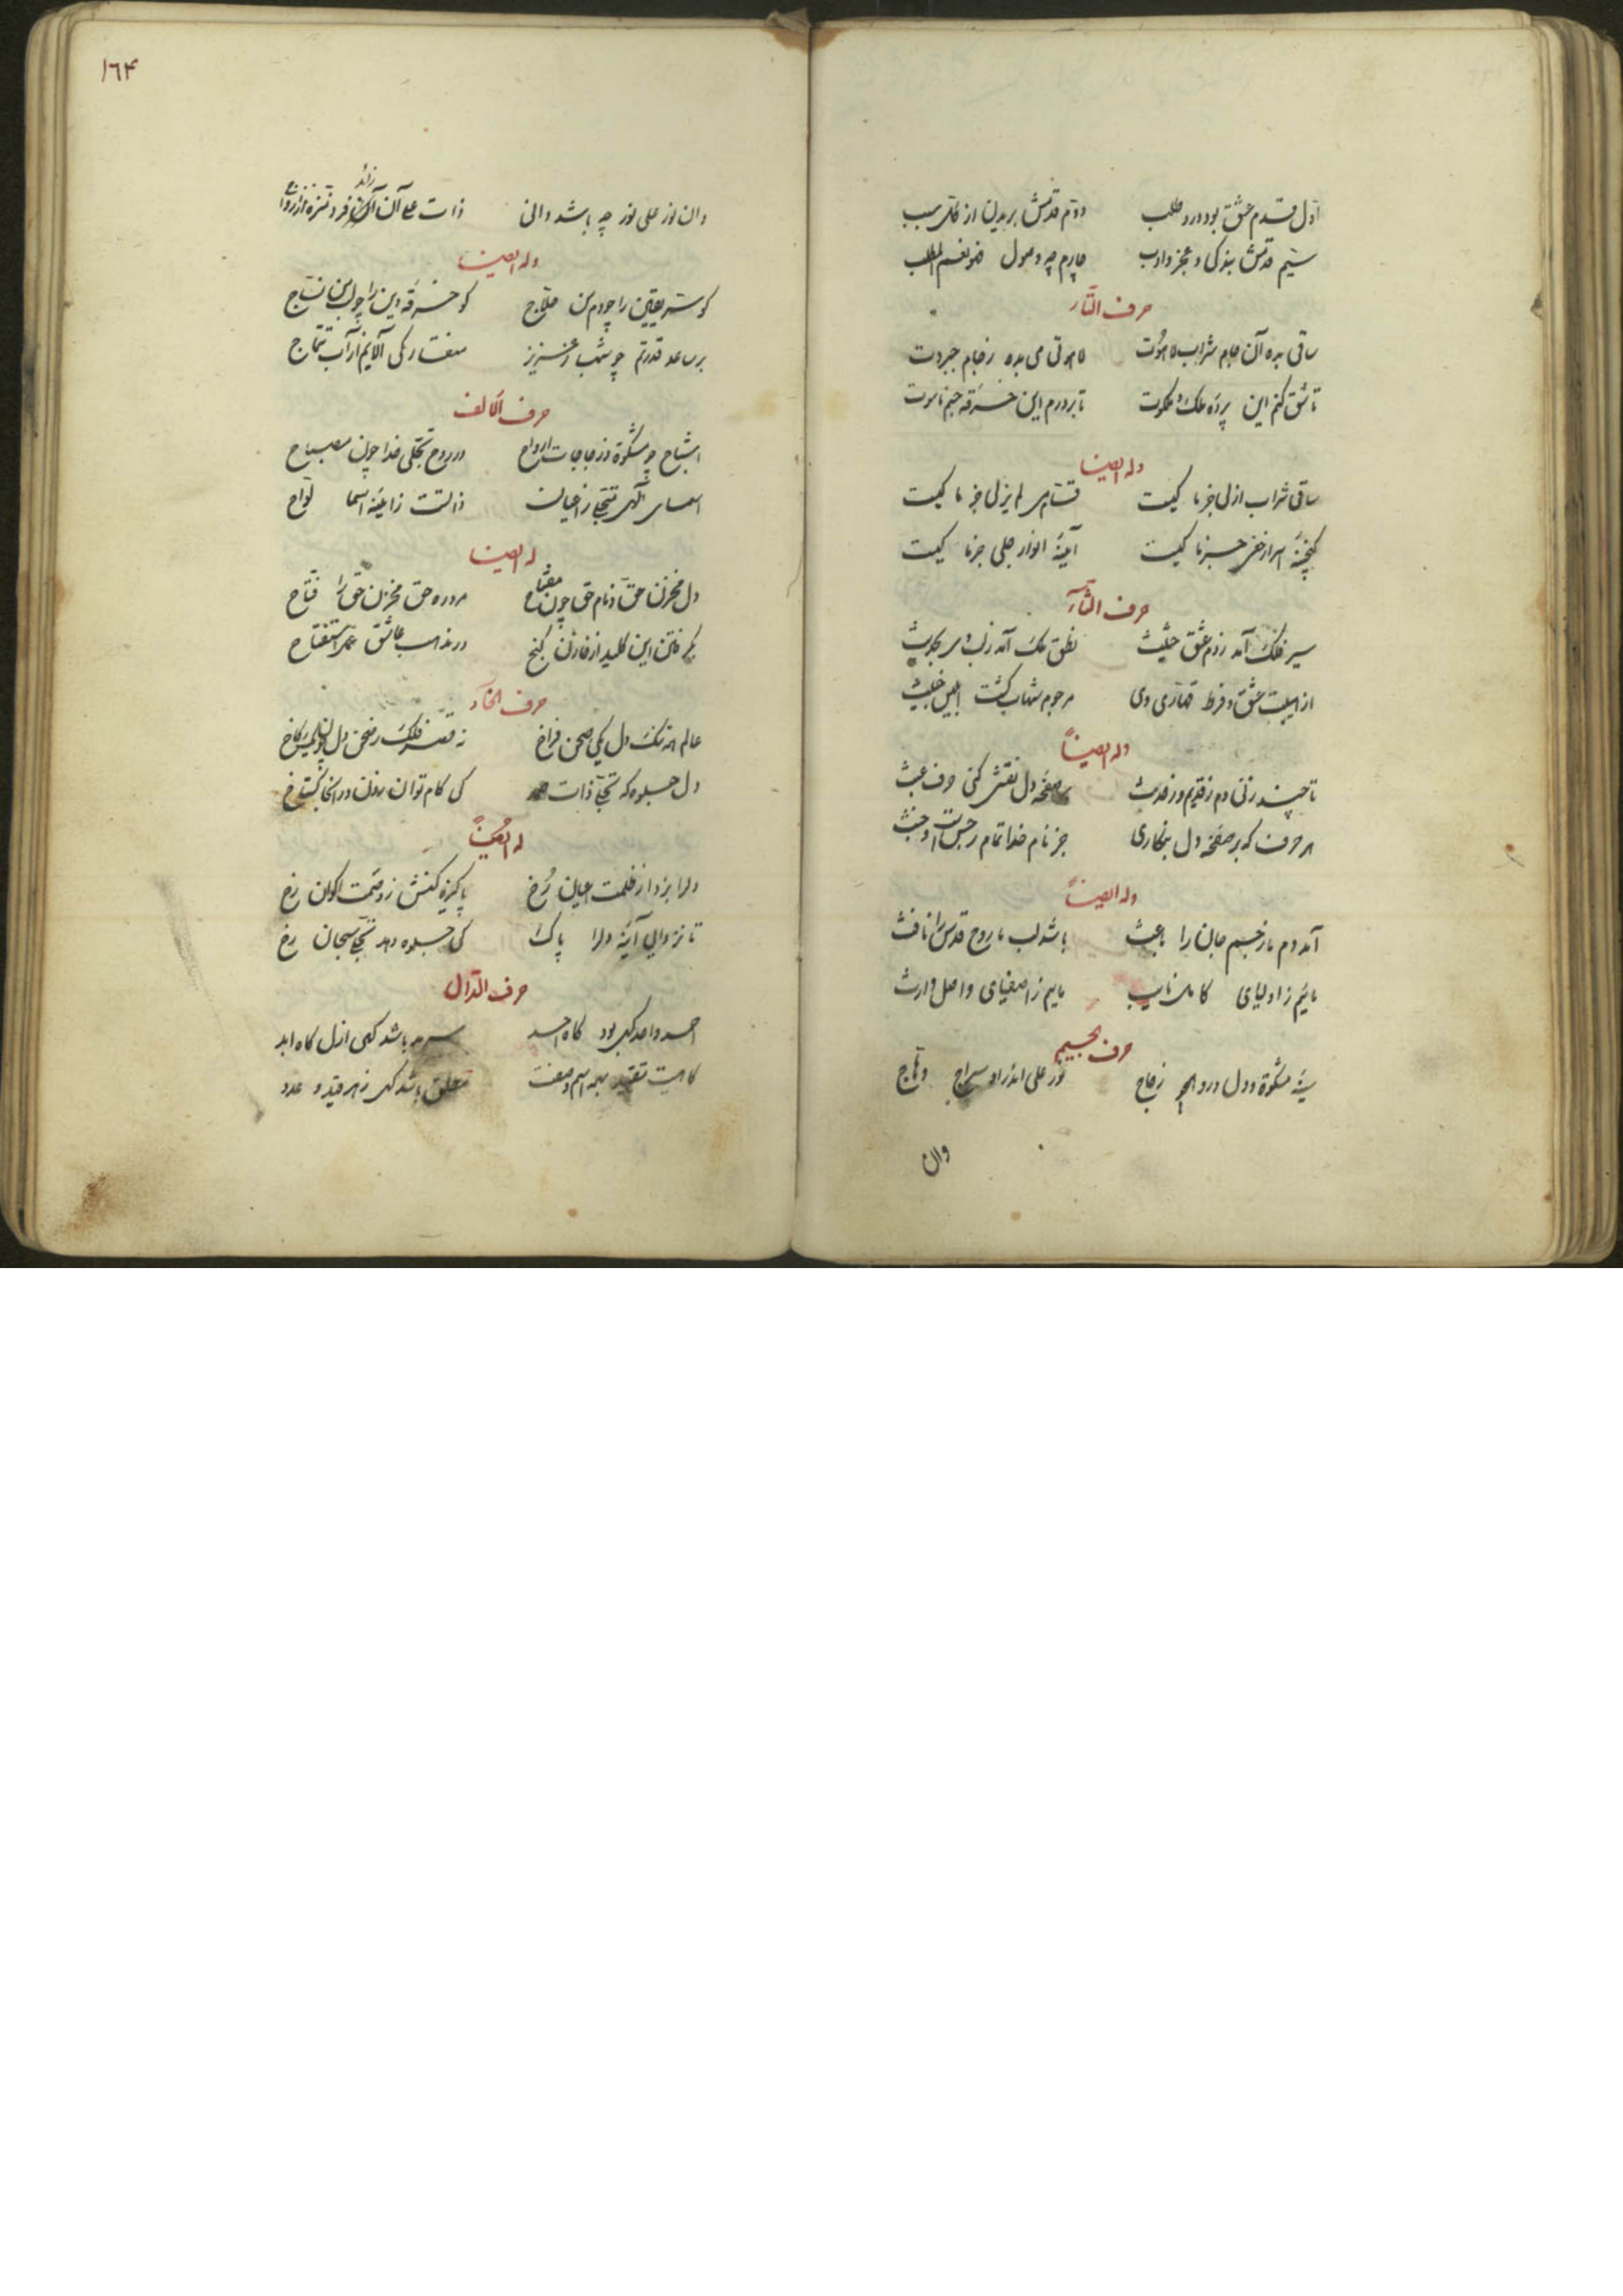 اوّل قدم عشق بود درد و طلب دوّم قدمش بریدن از کلّ سبب
سیم قدمش بندکی و عجز و ادب چارم چه وصول فلو نعم المطلب
حرف التّاء
ساقی بده آن جام شراب لاهُوت لاهوتی می بده ز جام جبروت
تا شق کنم این پردهٔ ملک و ملکوت تا بردرم این خرقهٔ جسم ناسوت
وله ایضا
ساقی شراب ازلی جز ما کیست قسّام لم یزلی جز ما کیست
کنجینهٔ اسرار خفی جز ما کیست آیینهٔ انوار جلی جز ما کیست
حرف الثّآء
سیر فلک آمد ز دم عشق حثیث نطق ملک آمد زلب
از هیبت عشق و فرط قهّاری وی مرجوم شهاب کشت ابلیس خبیث
وله ایضاً
تا چند زنی دم ز قدیم و ز حدث بر صفحهٔ دل نقش کنی حرف عبث
هر حرف که بر صفحهٔ دل بنکاری جز نام خدا تمام رجس است و خبث
وله ایضاً
آمد دم ما ز جسم جان را باعث باشد لب ما روح قدس را نافث
مائیم ز اولیای کامل نایب ماییم ز اصفیای واصل وارث
حرف الجیم
سینه مشکوة و دل درو زجاج نور علی اندر او سراج وهّاج
وان
١٦۴
وان نور علی نور چه باشد دانی ذات علی آن فرد منزه از ازواج
زائد
وله ایضا
کو ستر یقین را چو دم من حلّاج کو خرقهٔ دین را چو من نسّاج
بر ساعد قدرتم چو شهباز عزیز منقار کی آلایم از آب تتماج
حرف الحالف
اشباح چو مشکوة و زجاجات ارواح در روح تجلّی خدا چون مصباح
اسمای الهی تجلی ز اعیانست ذاتست ز آیینهٔ اسما لوّاح
له ایضا
دل مخزن حق و نام حق چون مفتاح مرد ره حق مخزن حق را فتّاح
یافتن این کلید از خازن کنج در مذهب عاشق استفتاح
حرف الخآء
عالم همه تنک دل یکی صحن فراخ نه قصر فلک ز صحن دل کاخ
دل جلوه که تجلی ذات کی کام توان نهادن در انجا کستاخ
له ایضاً
دلرا بزدا ز ظلمت اعیان رُخ پاکیزه کنش ز وصمت اکوان رخ
تا نزدایی آینهٔ دلرا پاک کی جلوه دهد تجلی سبحان رخ
حرف الدّال
احمد واحد کهی بود کاه احد سرمد باشد کهی ازل کاه ابد
کاهیست تقیّد بهمه اسم و صفت مطلق باشد کهی ز هر قید و عدد